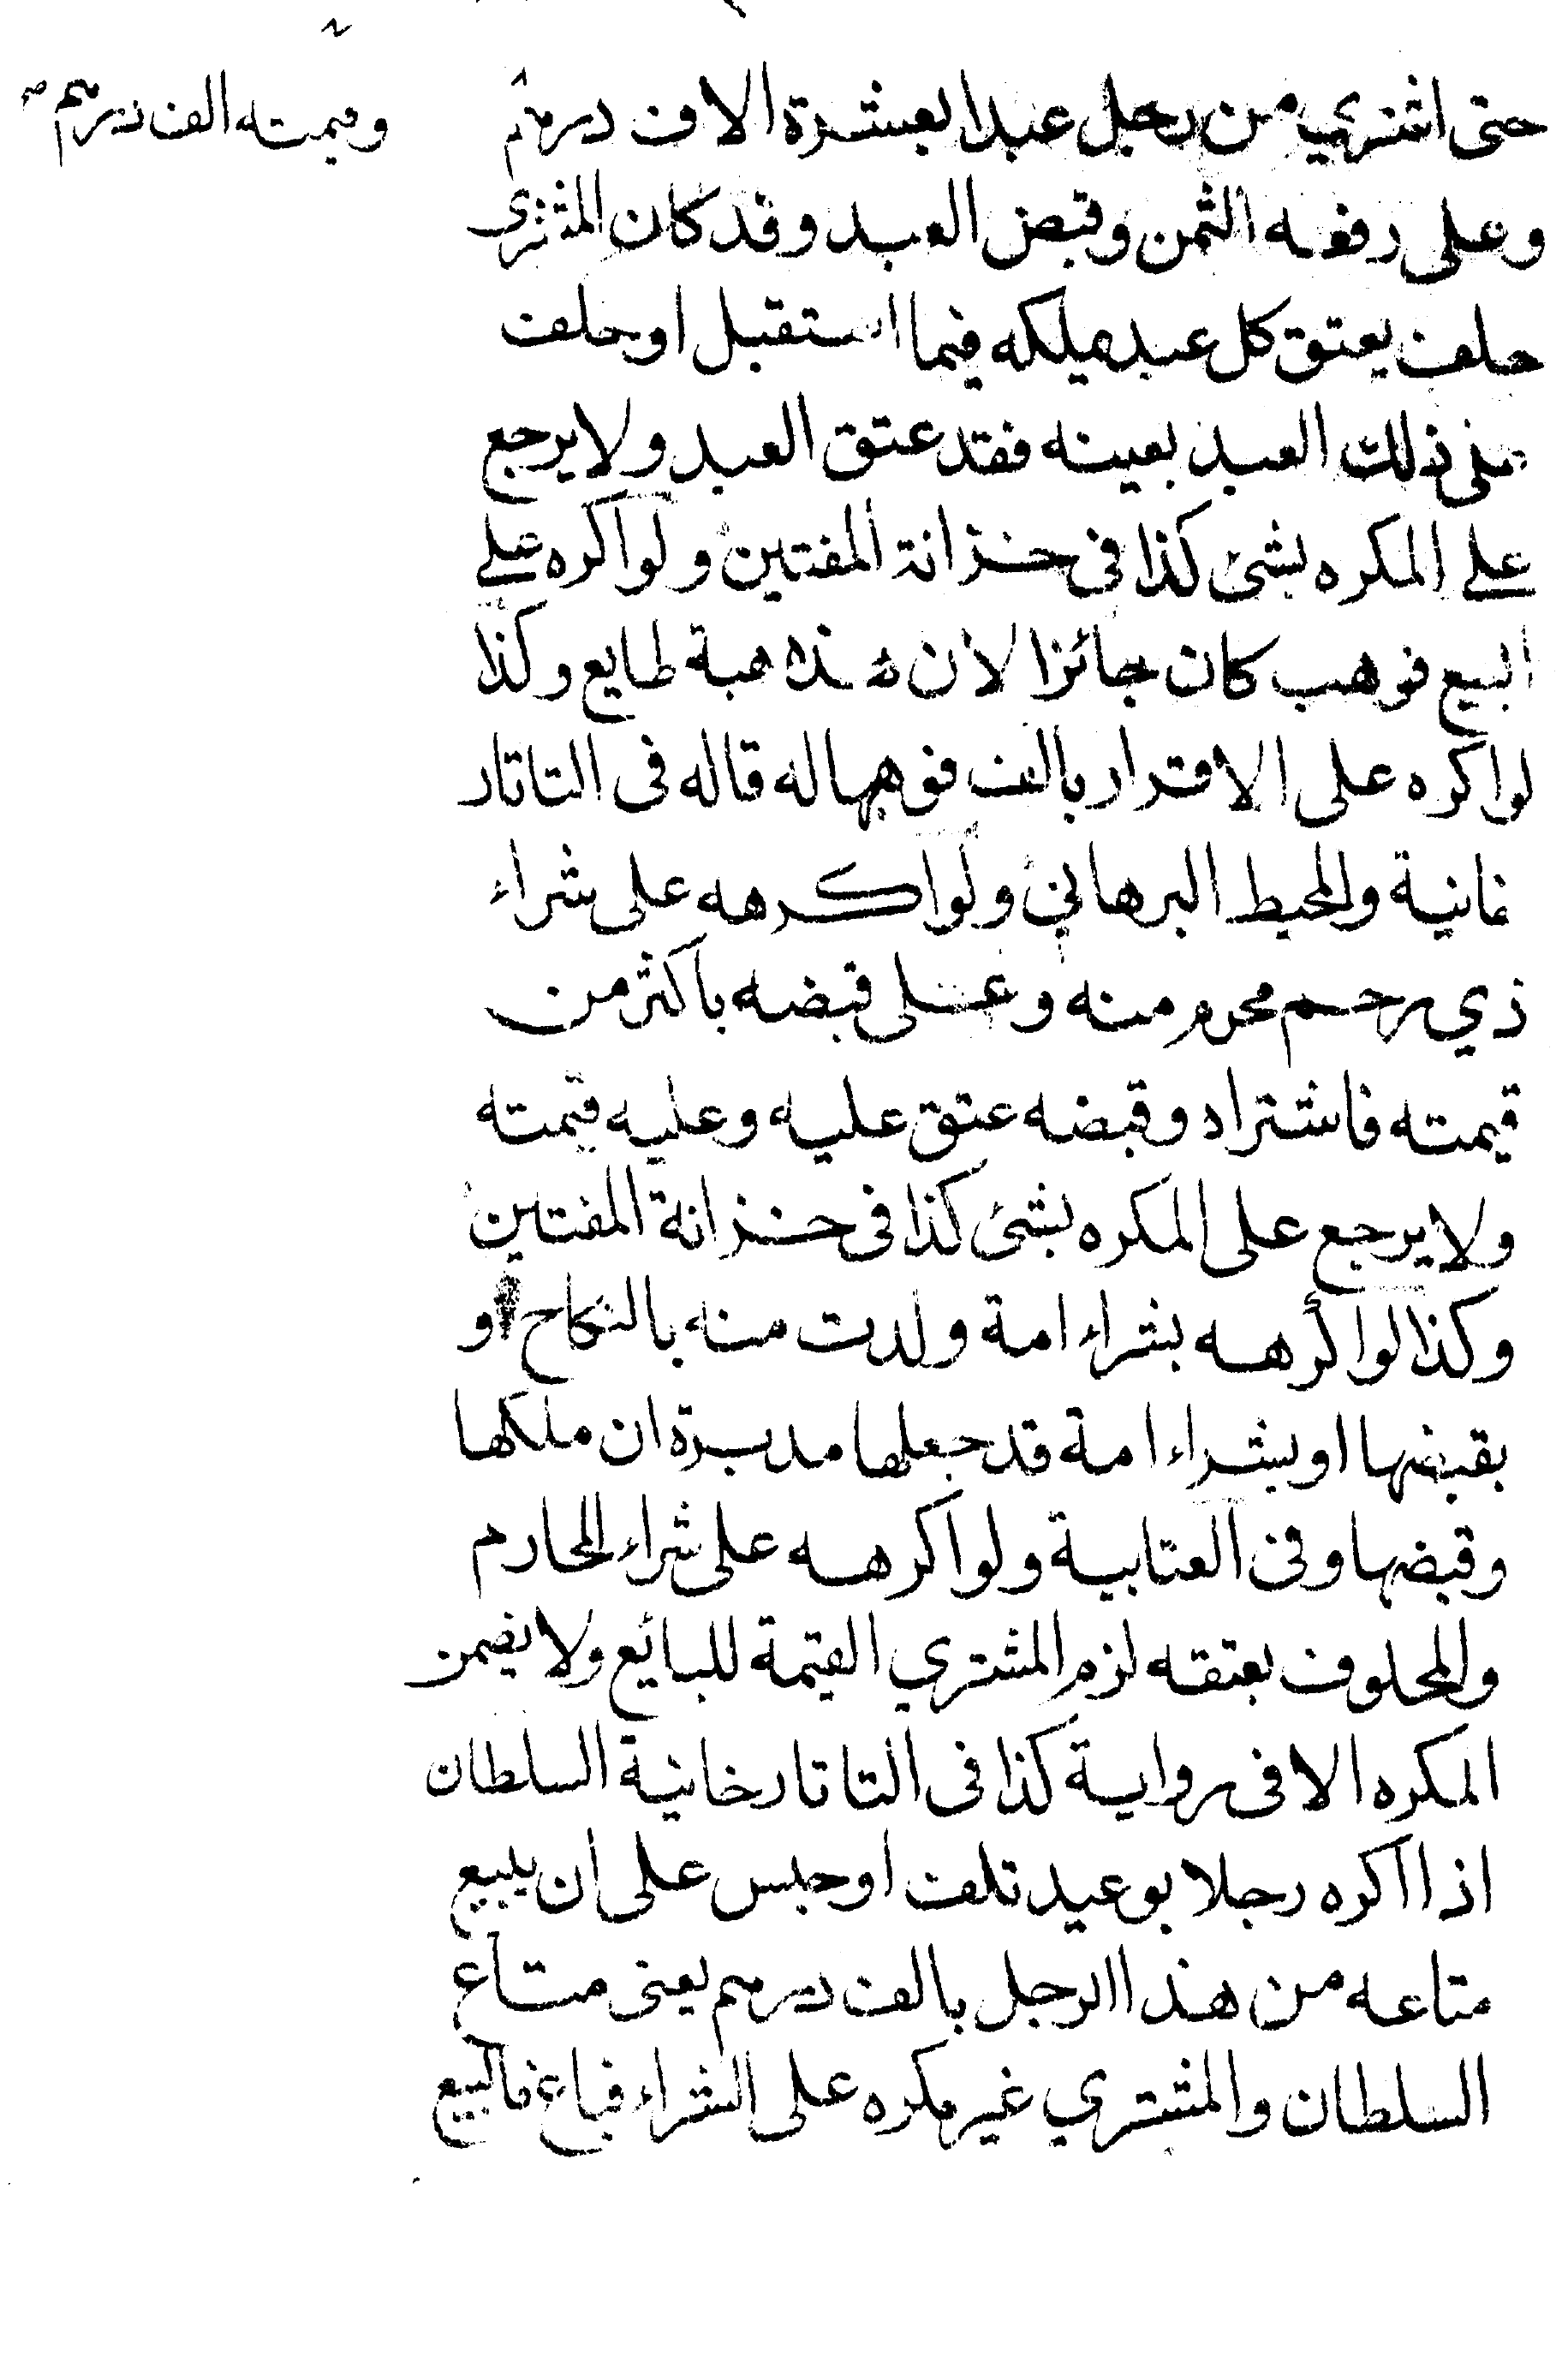 حتى اشتري من رجل عبدا بعشرة الاف درهم
وقيمته الف درهم صح
وعلى رفعه الثمن وقبض العبد وقد كان المشترى
حلف يعتق كل عبد يملكه فيما استقبل او حلف
على ذلك العبد بعينه فقد عتق العبد ولا يرجع
على المكره بشئ كذا فى خزانة المفتين ولو اكره على
البيع فوهب كان جائزا لان هذه هبة طايع وكذا
لو اكره على الاقرار بالف فوهبها له قاله فى التاتار
خانية والمحيط البرهاني ولو اكرهه على شراء
ذي رحم محرم منه وعلى قبضه باكثر من
قيمته فاشتراه وقبضه عتق عليه وعليه قيمته
ولا يرجع على المكره بشئ كذا فى خزانة المفتين
وكذا لو اكرهه بشراء امة ولدت منه بالنكاح او
بقبضها او بشراء امة قد جعلها مدبرة ان ملكها
وقبضها وفى العتابية ولو اكرهه على شراء المحارم
والمحلوف بعتقه لزم المشتري القيمة للبائع ولا يضمن
المكره الا فى رواية كذا فى التاتارخانية السلطان
اذا اكره رجلا بوعيد تلف او حبس على ان يبيع
متاعه من هذا الرجل بالف درهم يعنى متاع
السلطان والمشتري غير مكره على الشراء فباع فالبيع